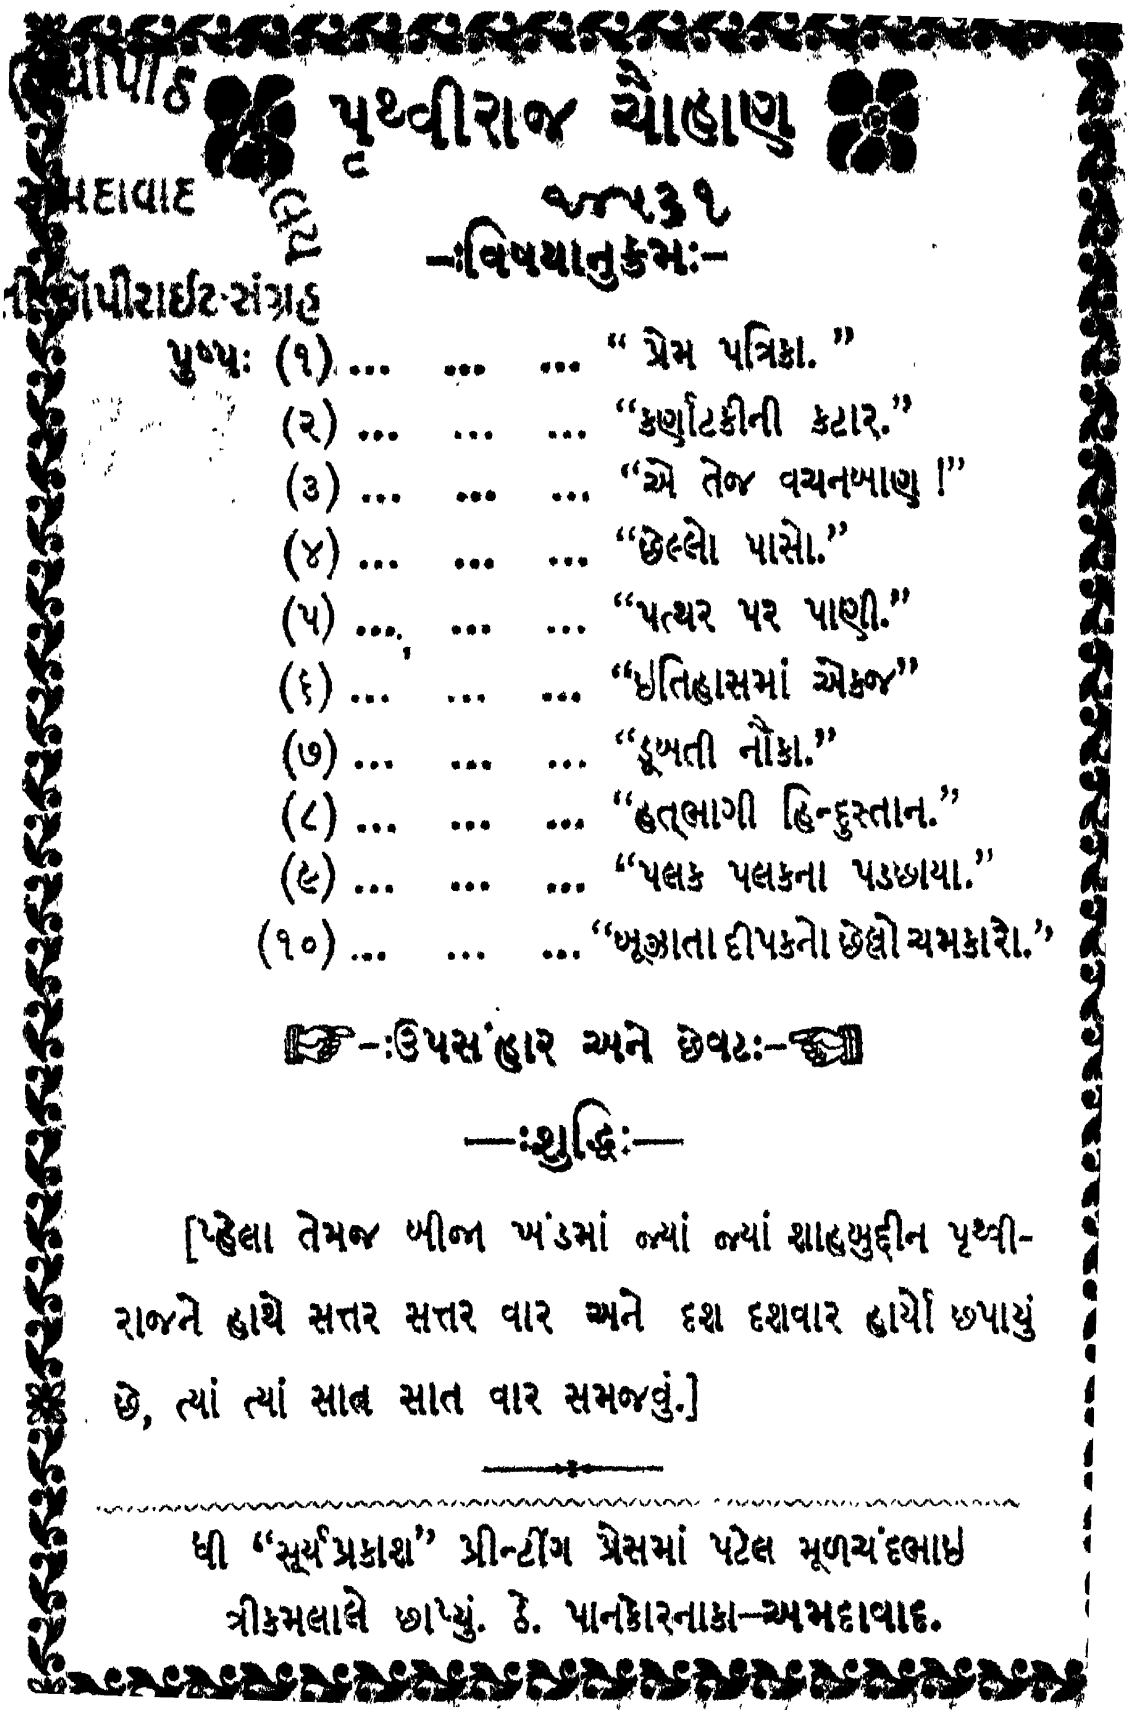 પૃથ્વીરાજ ચૌહાણ
-:વિષયાનુક્રમ:-
અમદાવાદ
કૉપીરાઈટ-સંગ્રહ
પુષ્પ: (૧) ... ... ... “ પ્રેમ પત્રિકા. ”
(૨) ... ... ... “કર્ણાટકીની કટાર.”
(૩) ... ... ... “એ તેજ વચનબાણ !”
(૪) ... ... ... “છેલ્લો પાસો.”
(૫) ... ... ... “પત્થર પર પાણી.”
(૬) ... ... ... “ઇતિહાસમાં એકજ”
(૭) ... ... ... “ડૂબતી નૌકા.”
(૮) ... ... ... “હત્‌ભાગી હિન્દુસ્તાન.”
(૯) ... ... ... “પલક પલકના પડછાયા.”
(૧૦) ... ... ... “બૂઝાતા દીપકનો છેલ્લો ચમકારો.”
-:ઉપસંહાર અને છેવટ:-
—:શુદ્ધિ:—
[પ્હેલા તેમજ બીજા ખંડમાં જ્યાં જ્યાં શાહબુદ્દીન પૃથ્વી-
રાજને હાથે સત્તર સત્તર વાર અને દશ દશવાર હાર્યો છપાયું
છે, ત્યાં ત્યાં સાત સાત વાર સમજવું.]
ધી “સૂર્યપ્રકાશ” પ્રીન્ટીંગ પ્રેસમાં પટેલ મૂળચંદભાઇ
ત્રીકમલાલે છાપ્યું. ઠે. પાનકોરનાકા—અમદાવાદ.